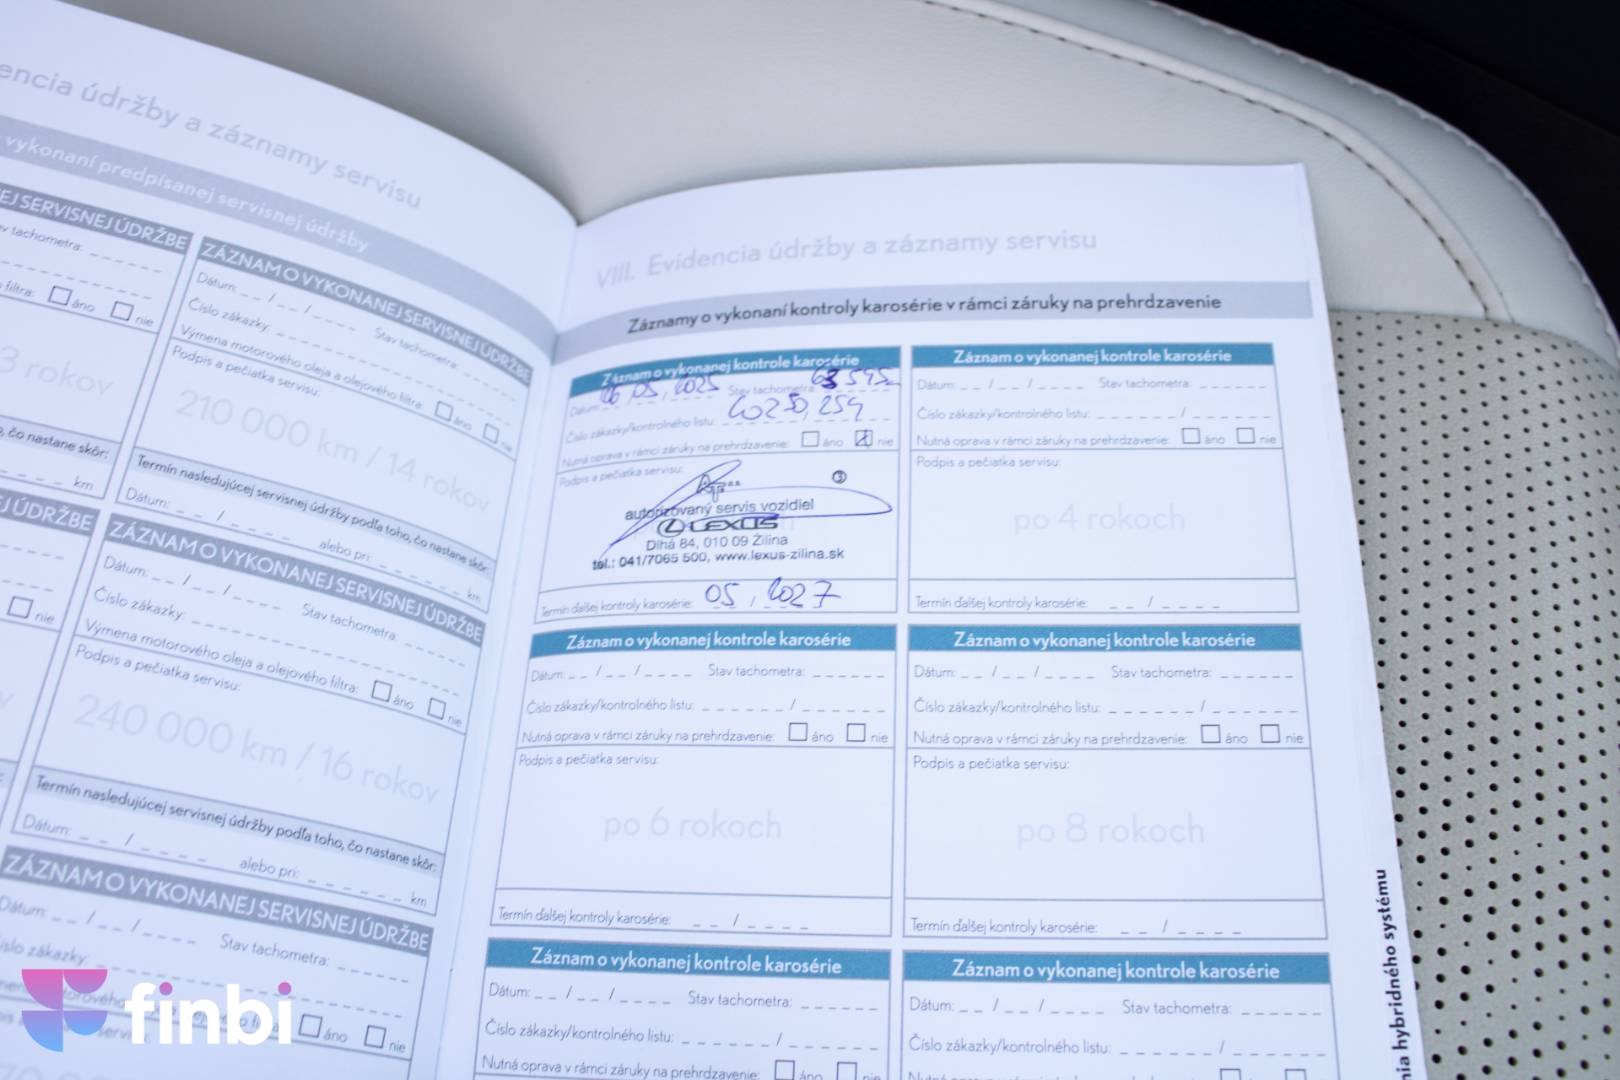 encia údržby a záznamy servisu
vykonaní predpísanej servisnej údržby
EJ SERVISNEJ ÚDRŽBE
tachometra: _ _ _ _ _ _
filtra: áno nie
3 rokov
, čo nastane skôr:
_ _ _ _ km
J ÚDRŽBE
nie
ZÁZNAM O VYKONANEJ SERVISNEJ ÚDRŽBE
Dátum: _ _ / _ _ / _ _ _ _ Stav tachometra: _ _ _ _ _ _
Číslo zákazky:
Výmena motorového oleja a olejového filtra: áno nie
Podpis a pečiatka servisu:
210 000 km / 14 rokov
Termín nasledujúcej servisnej údržby podľa toho, čo nastane skôr:
Dátum: _ _ / _ _ _ _ alebo pri: _ _ _ _ _ _ km
ZÁZNAM O VYKONANEJ SERVISNEJ ÚDRŽBE
Dátum: _ _ / _ _ / _ _ _ _ Stav tachometra: _ _ _ _ _ _
Číslo zákazky:
Výmena motorového oleja a olejového filtra: áno nie
Podpis a pečiatka servisu:
240 000 km / 16 rokov
Termín nasledujúcej servisnej údržby podľa toho, čo nastane skôr:
Dátum: _ _ / _ _ _ _ alebo pri: _ _ _ _ _ _ km
ZÁZNAM O VYKONANEJ SERVISNEJ ÚDRŽBE
Dátum: _ _ / _ _ / _ _ _ _ Stav tachometra: _ _ _ _ _ _
číslo zákazky:
áno nie
finbi
VIII. Evidencia údržby a záznamy servisu
Záznamy o vykonaní kontroly karosérie v rámci záruky na prehrdzavenie
Záznam o vykonanej kontrole karosérie
Dátum: 06 / 05 / 2025 Stav tachometra: 63 545
Číslo zákazky/kontrolného listu:
Nutná oprava v rámci záruky na prehrdzavenie: áno nie
Podpis a pečiatka servisu:
③
autorizovaný servis vozidiel
LEXUS
Dlhá 84, 010 09 Žilina
tel.: 041/7065 500, www.lexus-zilina.sk
Termín ďalšej kontroly karosérie: 05 / 2027
Záznam o vykonanej kontrole karosérie
Dátum: _ _ / _ _ / _ _ _ _ Stav tachometra: _ _ _ _ _ _
Číslo zákazky/kontrolného listu: _ _ _ _ _ _ _ / _ _ _ _ _ _
Nutná oprava v rámci záruky na prehrdzavenie: áno nie
Podpis a pečiatka servisu:
po 4 rokoch
Termín ďalšej kontroly karosérie: _ _ / _ _ _ _
Záznam o vykonanej kontrole karosérie
Dátum: _ _ / _ _ / _ _ _ _ Stav tachometra: _ _ _ _ _ _
Číslo zákazky/kontrolného listu: _ _ _ _ _ _ _ / _ _ _ _ _ _
Nutná oprava v rámci záruky na prehrdzavenie: áno nie
Podpis a pečiatka servisu:
po 6 rokoch
Termín ďalšej kontroly karosérie: _ _ / _ _ _ _
Záznam o vykonanej kontrole karosérie
Dátum: _ _ / _ _ / _ _ _ _ Stav tachometra: _ _ _ _ _ _
Číslo zákazky/kontrolného listu: _ _ _ _ _ _ _ / _ _ _ _ _ _
Nutná oprava v rámci záruky na prehrdzavenie: áno nie
Podpis a pečiatka servisu:
po 8 rokoch
Termín ďalšej kontroly karosérie: _ _ / _ _ _ _
Záznam o vykonanej kontrole karosérie
Dátum: _ _ / _ _ / _ _ _ _ Stav tachometra: _ _ _ _ _ _
Číslo zákazky/kontrolného listu: _ _ _ _ _ _ _ / _ _ _ _ _ _
Nutná oprava v rámci záruky na prehrdzavenie: áno nie
Záznam o vykonanej kontrole karosérie
Dátum: _ _ / _ _ / _ _ _ _ Stav tachometra: _ _ _ _ _ _
Číslo zákazky/kontrolného listu: _ _ _ _ _ _ _ / _ _ _ _ _ _
Nutná oprava v rámci záruky na prehrdzavenie: áno nie
nia hybridného systému